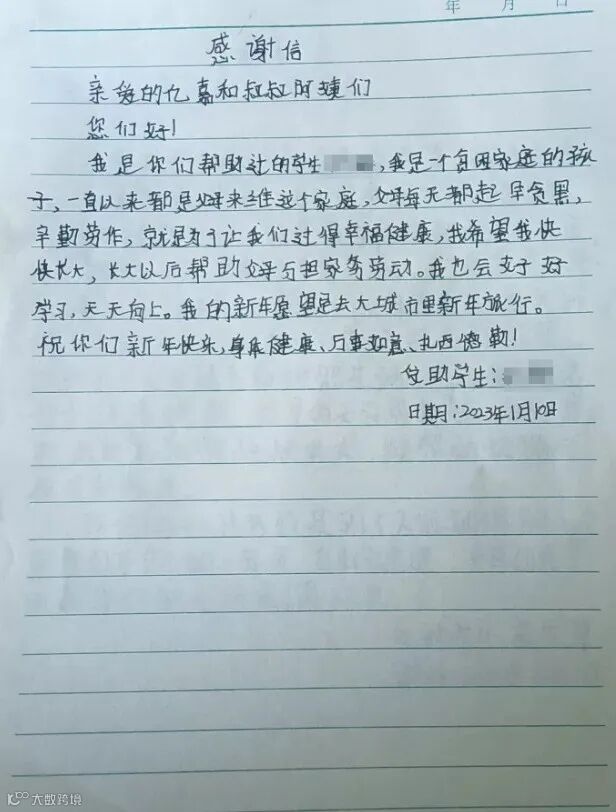 年 月 日
感谢信
亲爱的亿嘉和叔叔阿姨们
您们好!
我是你们帮助过的学生 ,我是一个贫困家庭的孩
子,一直以来都是父母来维这个家庭,父母每天都起早贪黑,
辛勤劳作,就是为了让我们过得幸福健康,我希望我快
快长大,长大以后帮助父母分担家务劳动。我也会好好
学习,天天向上。我的新年愿望是去大城市里新年旅行。
祝你们新年快乐,身体健康、万事如意、扎西德勒!
受助学生:
日期:2023年1月10日
大数跨境